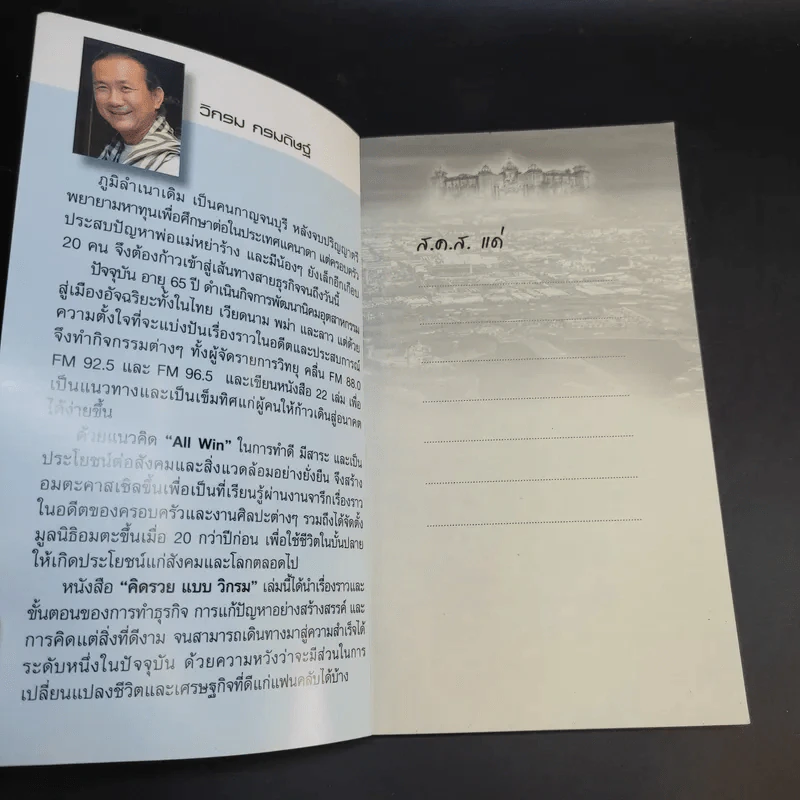 วิกรม กรมดิษฐ์
ภูมิลำเนาเดิม เป็นคนกาญจนบุรี หลังจบปริญญาตรี
พยายามหาทุนเพื่อศึกษาต่อในประเทศแคนาดา แต่ครอบครัว
ประสบปัญหาพ่อแม่หย่าร้าง และมีน้องๆ ยังเล็กอีกเกือบ
20 คน จึงต้องก้าวเข้าสู่เส้นทางสายธุรกิจจนถึงวันนี้
ปัจจุบัน อายุ 65 ปี ดำเนินกิจการพัฒนานิคมอุตสาหกรรม
สู่เมืองอัจฉริยะทั้งในไทย เวียดนาม พม่า และลาว แต่ด้วย
ความตั้งใจที่จะแบ่งปันเรื่องราวในอดีตและประสบการณ์
จึงทำกิจกรรมต่างๆ ทั้งผู้จัดรายการวิทยุ คลื่น FM 88.0
FM 92.5 และ FM 96.5 และเขียนหนังสือ 22 เล่ม เพื่อ
เป็นแนวทางและเป็นเข็มทิศแก่ผู้คนให้ก้าวเดินสู่อนาคต
ได้ง่ายขึ้น
ด้วยแนวคิด “All Win” ในการทำดี มีสาระ และเป็น
ประโยชน์ต่อสังคมและสิ่งแวดล้อมอย่างยั่งยืน จึงสร้าง
อมตะคาสเซิลขึ้นเพื่อเป็นที่เรียนรู้ผ่านงานจารึกเรื่องราว
ในอดีตของครอบครัวและงานศิลปะต่างๆ รวมถึงได้จัดตั้ง
มูลนิธิอมตะขึ้นเมื่อ 20 กว่าปีก่อน เพื่อใช้ชีวิตในบั้นปลาย
ให้เกิดประโยชน์แก่สังคมและโลกตลอดไป
หนังสือ “คิดรวย แบบ วิกรม” เล่มนี้ได้นำเรื่องราวและ
ขั้นตอนของการทำธุรกิจ การแก้ปัญหาอย่างสร้างสรรค์ และ
การคิดแต่สิ่งที่ดีงาม จนสามารถเดินทางมาสู่ความสำเร็จได้
ระดับหนึ่งในปัจจุบัน ด้วยความหวังว่าจะมีส่วนในการ
เปลี่ยนแปลงชีวิตและเศรษฐกิจที่ดีแก่แฟนคลับได้บ้าง
ส.ค.ส. แด่